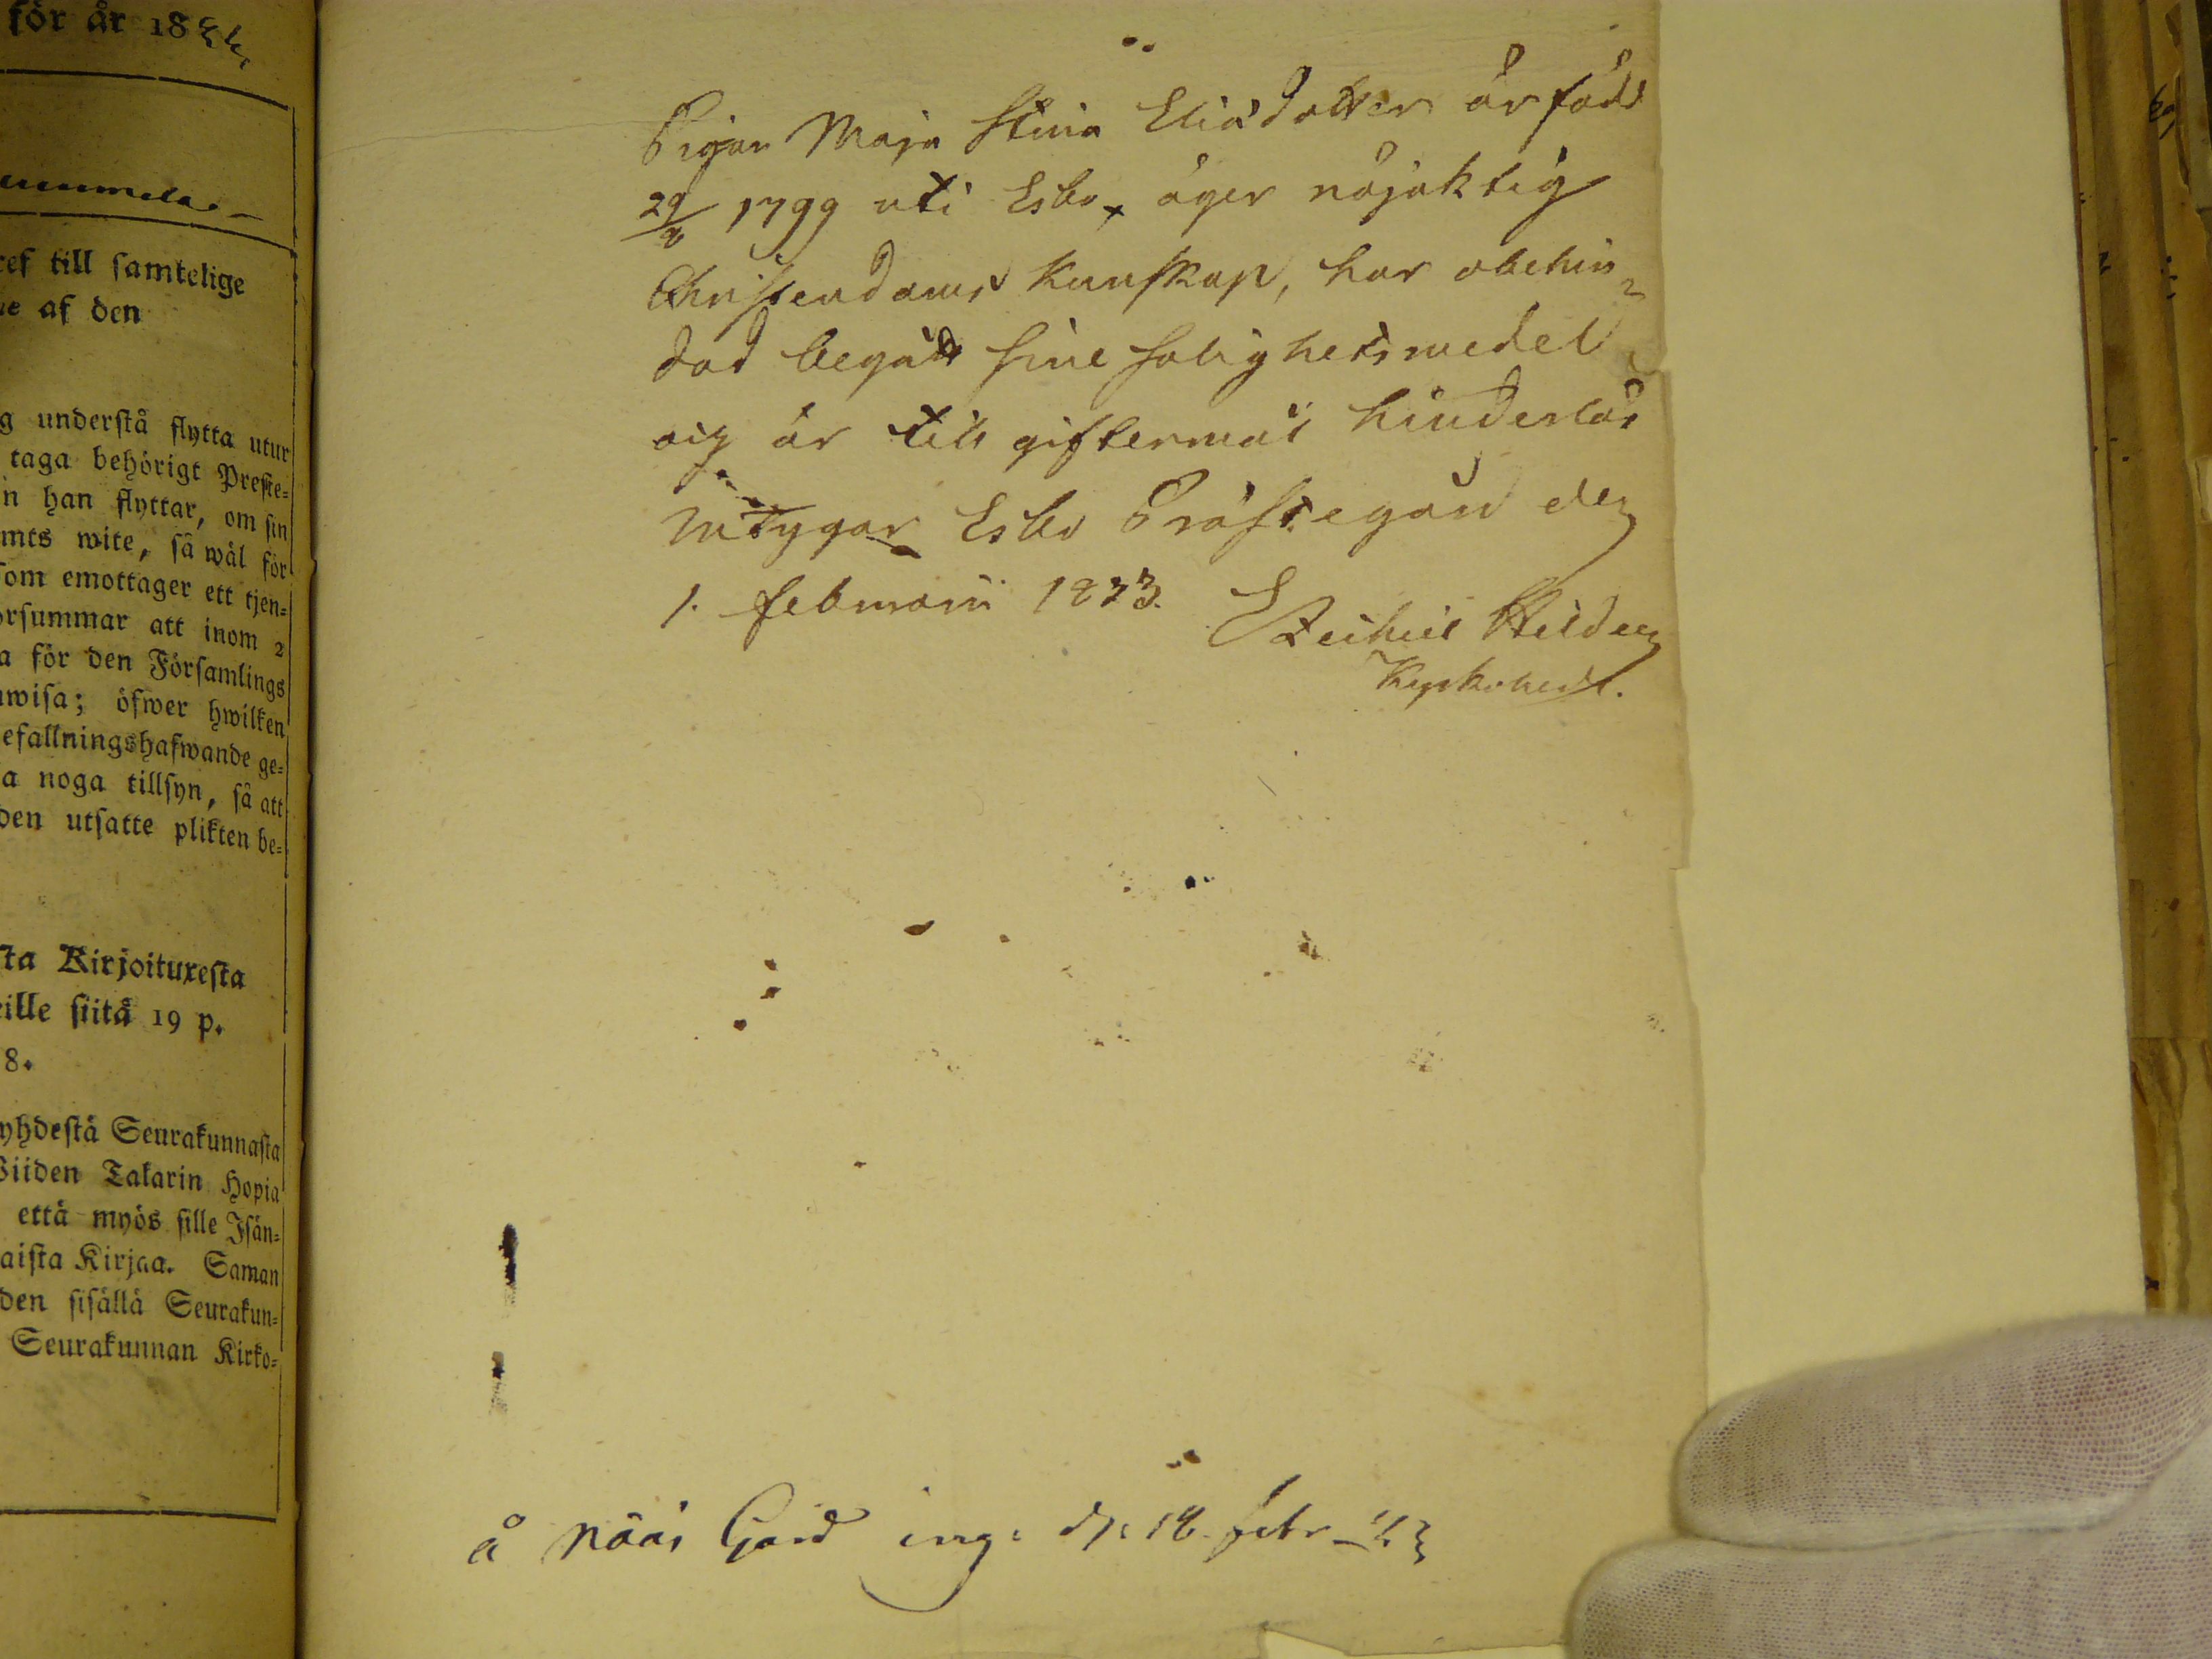 för år 18
ref till samtelige
ne af den
g understå flytta utur
taga behörigt Preste=
n han flyttar, om sin
mts wite, så wäl för
som emottager ett tjen=
rsummar att inom 2
a för den Församlings
wisa; öfwer hwilken
efallningshafwande ge=
a noga tillsyn, så att
den utsatte plikten be=
ta Kirjoituxesta
ille siitä 19 p.
8.
yhdestä Seurakunnasta
Wiiden Takarin Hopia
että myös sille Isän=
aista Kirjaa. Saman
den sisällä Seurakun=
Seurakunnan Kirko=
Pigan Maja Stina Eliädotter är född
29/8 1799 uti Esbo, äger nöjaktig
Christendoms kunskap, har obehin=
drad begått sine salighetsmedel
och är till giftermål hinderlös
intygar Esbo Prästegård den
1. februarii 1823.
Kyrkoherde.
å Nääs Gård ing: d: 18 febr 23